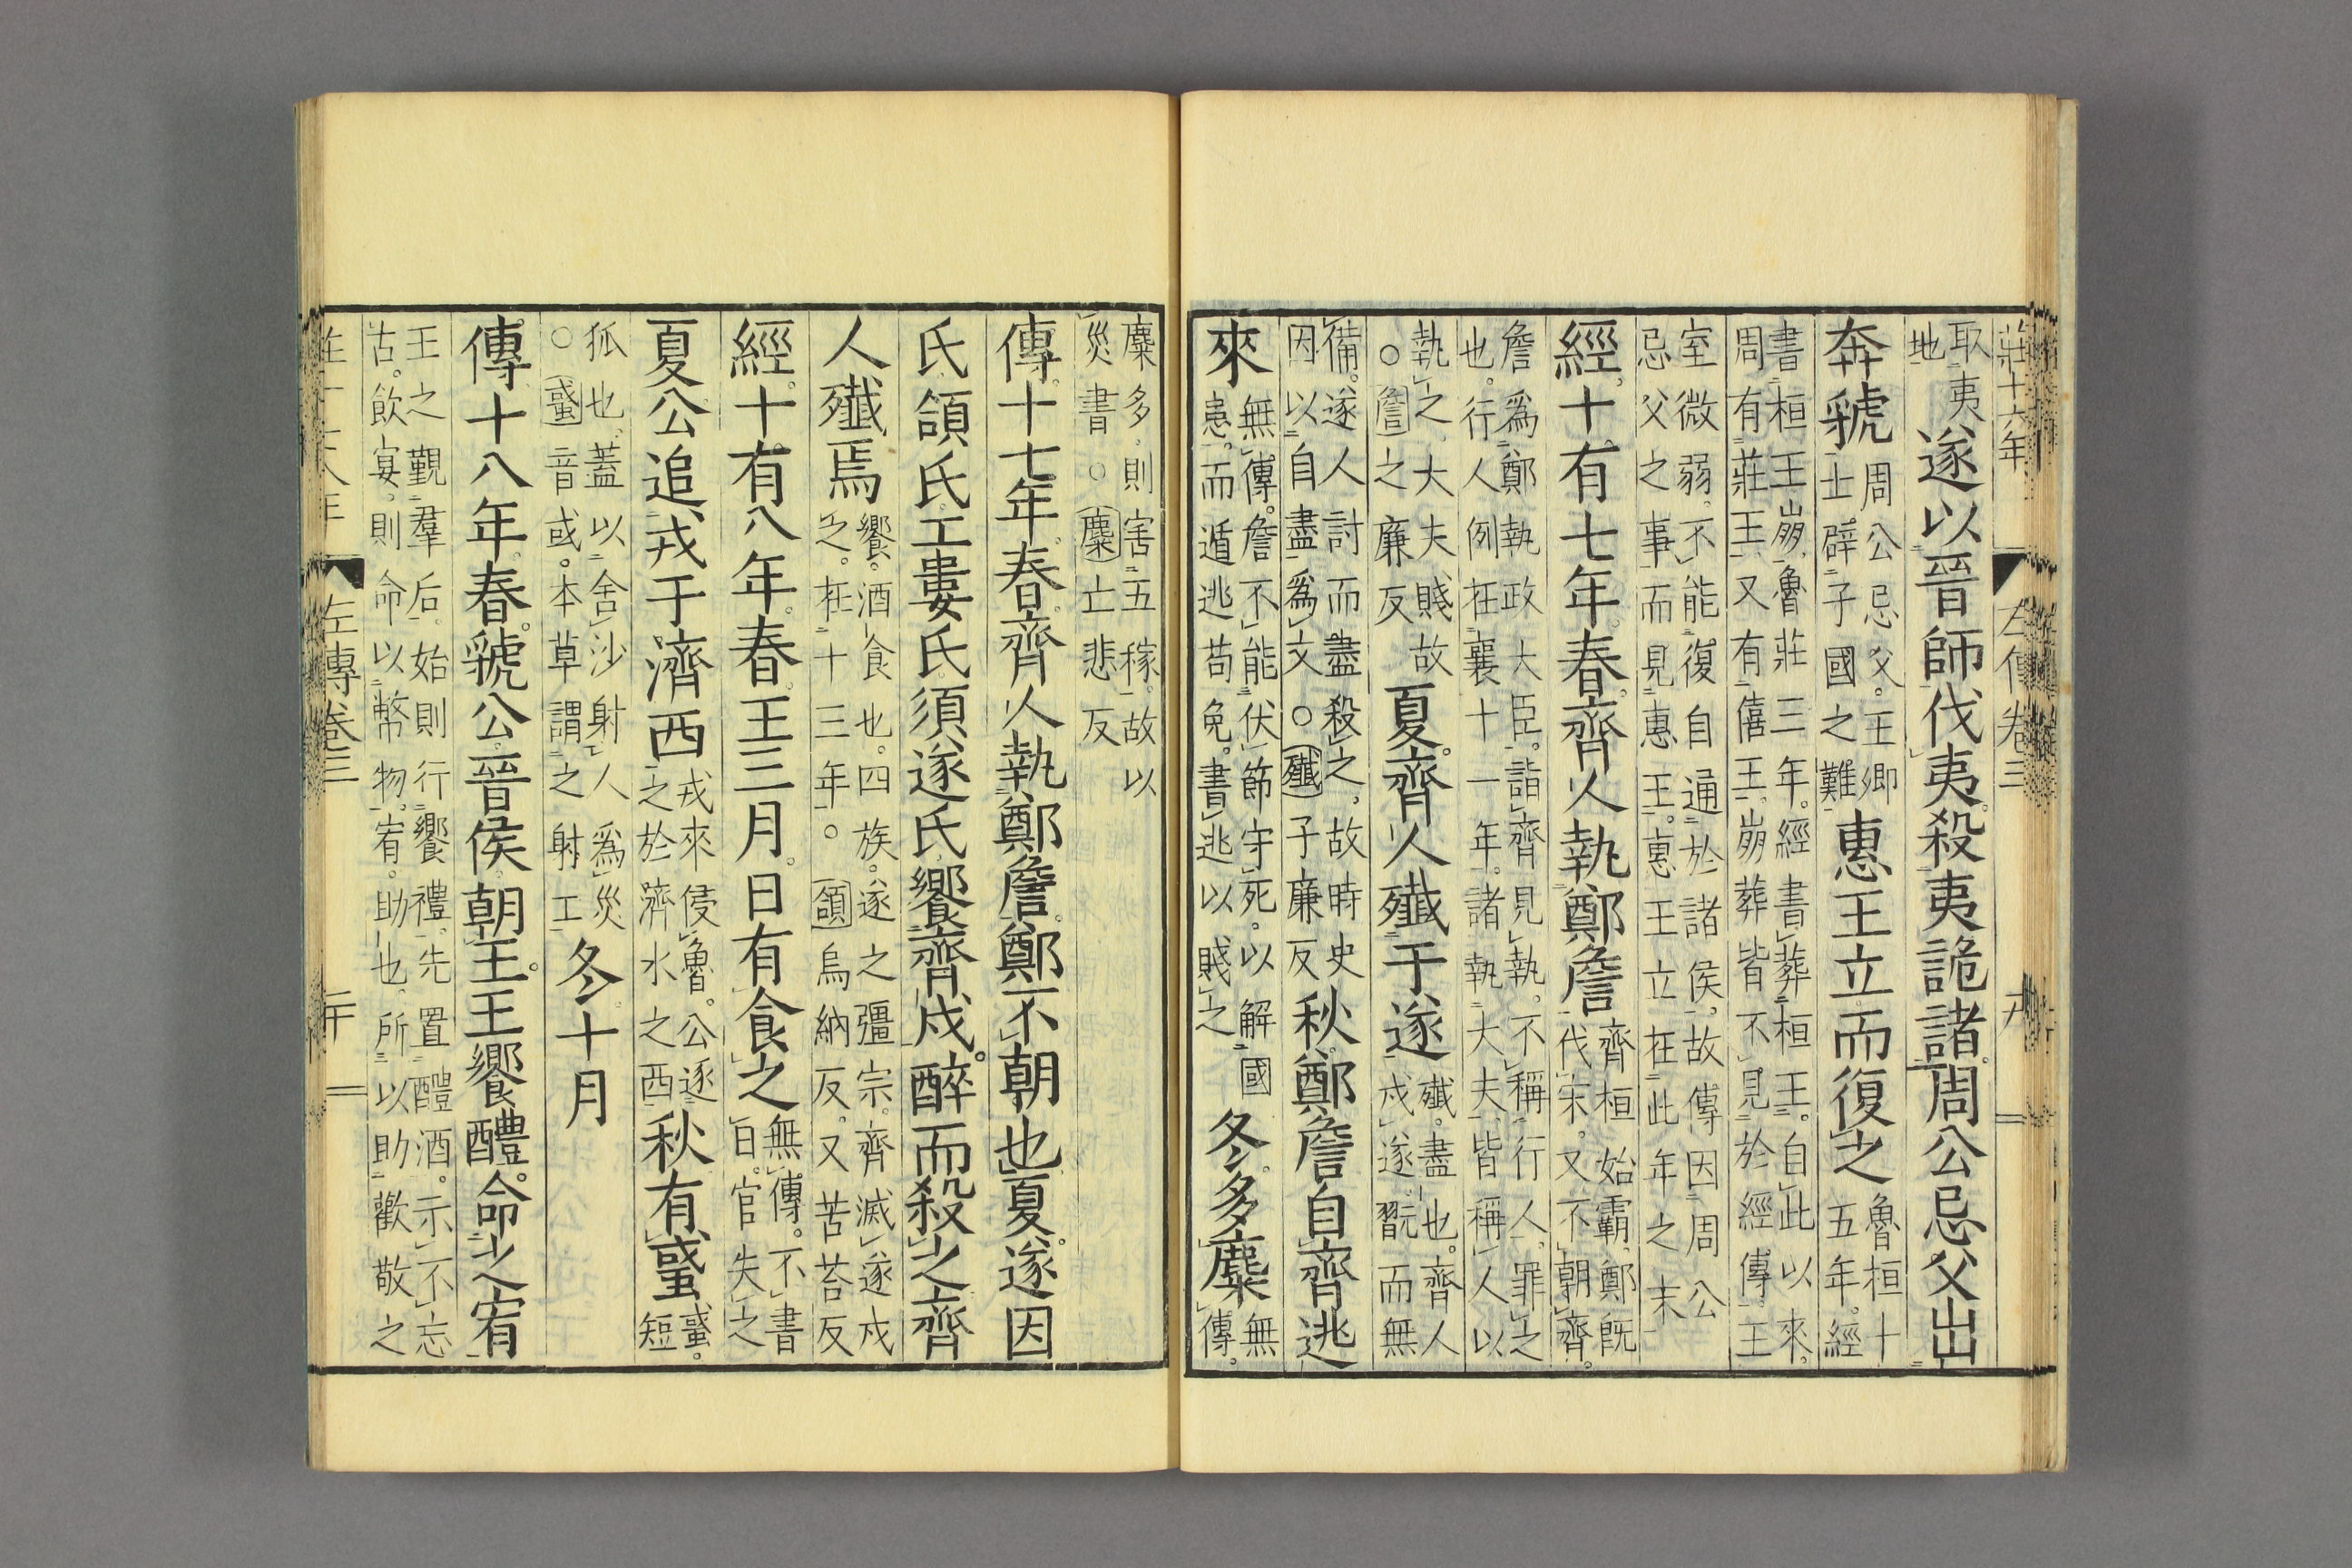 莊十六年 左傳卷三
取夷
地
遂以晉師伐夷殺夷詭諸周公忌父出
奔虢
周公忌父王卿
士辟子國之難
惠王立而復之
魯桓十
五年經
書桓王崩魯莊三年經書葬桓王自此以來
周有莊王又有僖王崩葬皆不見於經傳王
室微弱不能復自通於諸侯故傳因周公
忌父之事而見惠王惠王立在此年之末
經十有七年春齊人執鄭詹
齊桓始霸鄭旣
伐宋又不朝齊
詹爲鄭執政大臣詣齊見執不稱行人罪之
也行人例在襄十一年諸執大夫皆稱人以
執之大夫賤故
○詹之廉反
夏齊人殲于遂
殲盡也齊人
戍遂翫而無
備遂人討而盡殺之故時史
因以自盡爲文○殲子廉反
秋鄭詹自齊逃
來
無傳詹不能伏節守死以解國
患而遁逃苟免書逃以賤之
冬多麋
無
傳
麋多則害五稼故以
災書○麋亡悲反
傳十七年春齊人執鄭詹鄭不朝也夏遂因
氏頜氏工婁氏須遂氏饗齊戍醉而殺之齊
人殲焉
饗酒食也四族遂之彊宗齊滅遂戍
之在十三年○頜烏納反又苦荅反
經十有八年春王三月日有食之
無傳不書
日官失之
夏公追戎于濟西
戎來侵魯公逐
之於濟水之西
秋有蜮
蜮
短
狐也蓋以含沙射人爲災
○蜮音或本草謂之射工
冬十月
傳十八年春虢公晉侯朝王王饗醴命之宥
王之覲羣后始則行饗禮先置醴酒示不忘
古飲宴則命以幣物宥助也所以助歡敬之
左傳卷三 二十